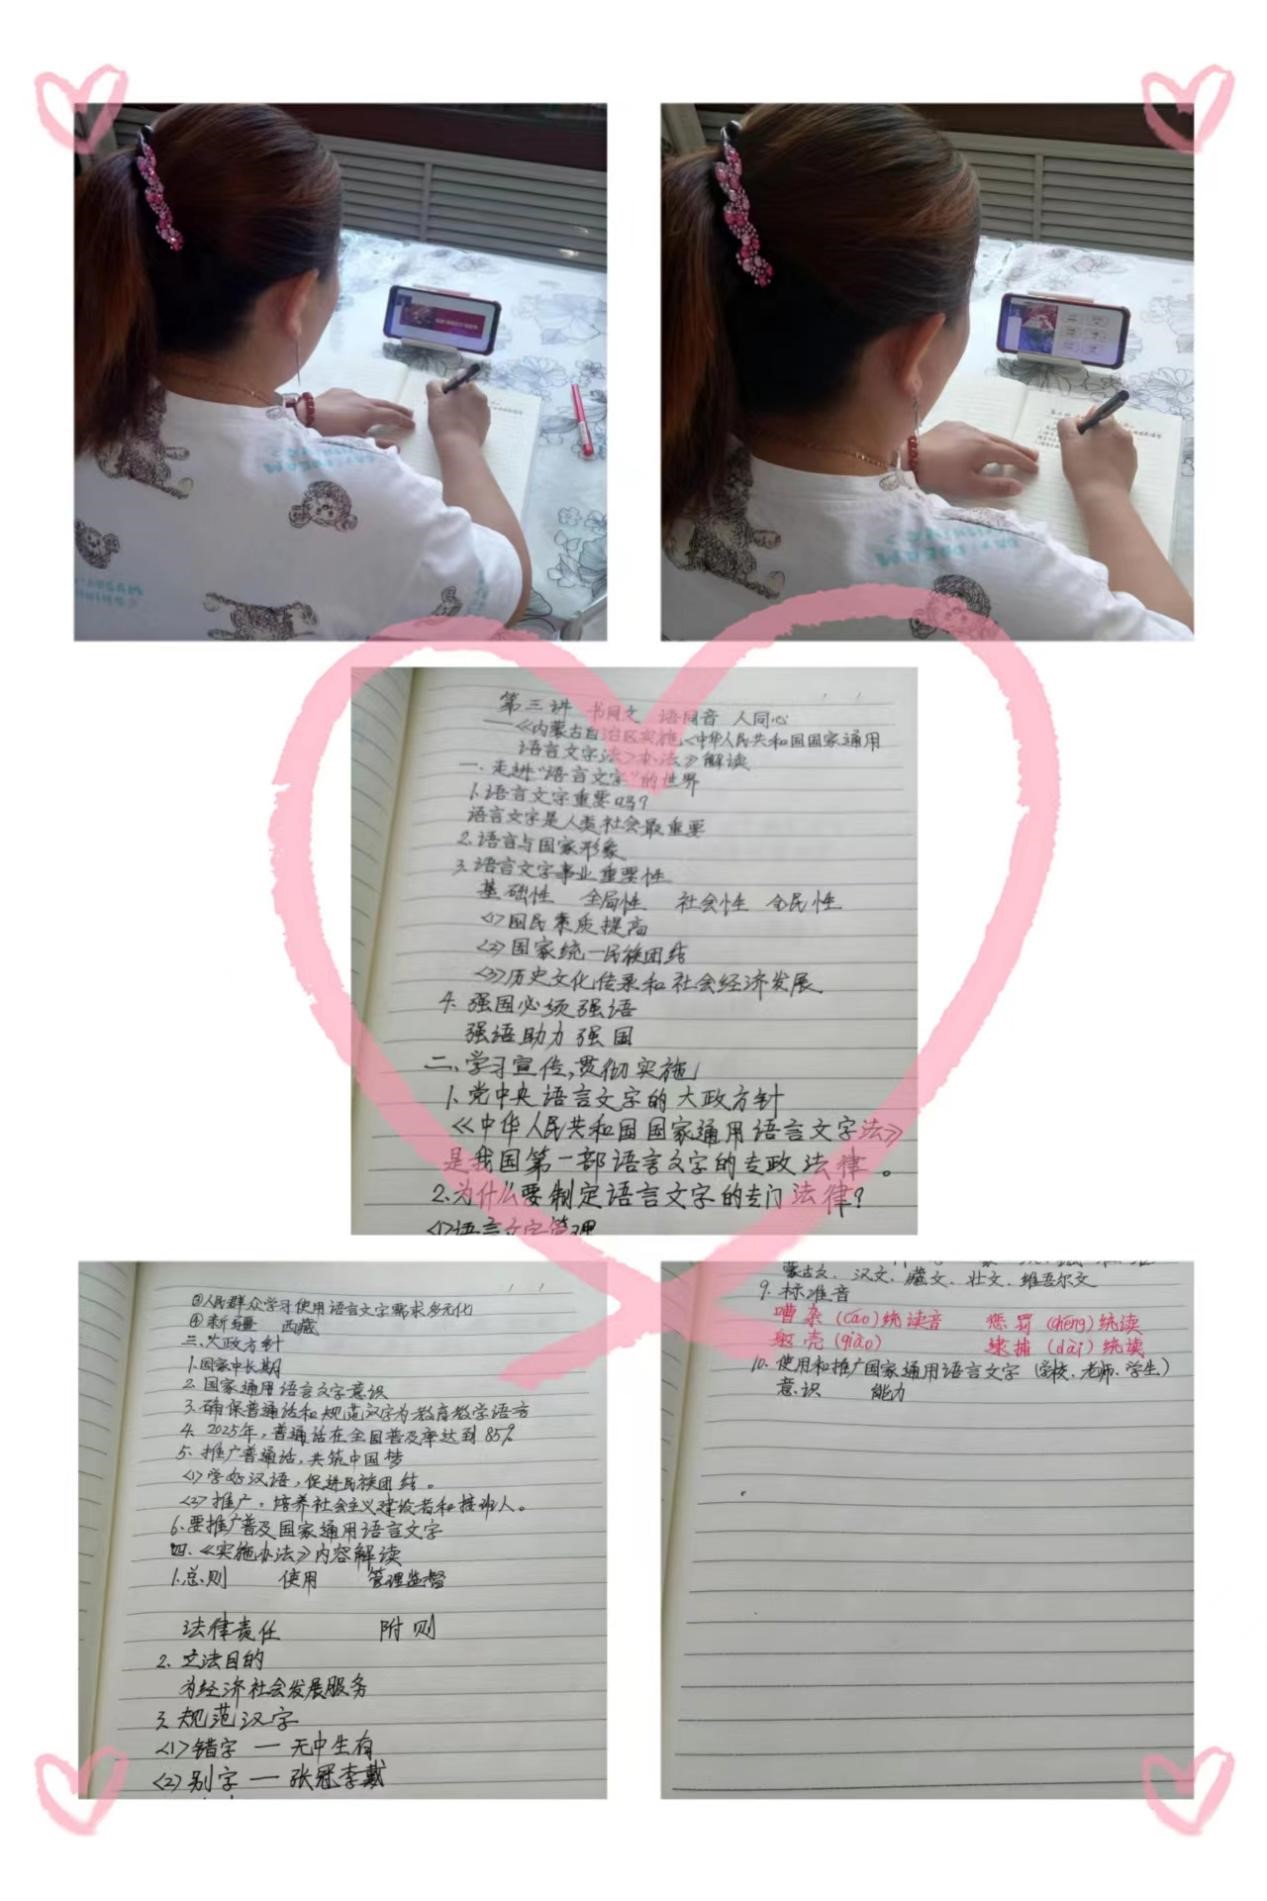 第三讲 书同文 语同音 人同心
——《内蒙古自治区实施<中华人民共和国国家通用
语言文字法>办法》解读
一、走进“语言文字”的世界
1.语言文字重要吗?
语言文字是人类社会最重要
2.语言与国家形象
3.语言文字事业重要性
基础性 全局性 社会性 全民性
<1>国民素质提高
<2>国家统一民族团结
<3>历史文化传承和社会经济发展.
4.强国必须强语
强语助力强国
二、学习宣传,贯彻实施
1.党中央语言文字的大政方针
《中华人民共和国国家通用语言文字法》
是我国第一部语言文字的专政法律。
2.为什么要制定语言文字的专门法律?
<1>语言文字管理
③人民群众学习使用语言文字需求多元化
④新疆 西藏
三.大政方针
1.国家中长期
2.国家通用语言文字意识
3.确保普通话和规范汉字为教育教学语言
4.2025年,普通话在全国普及率达到85%
5.推广普通话,共筑中国梦
<1>学好汉语,促进民族团结。
<2>推广,培养社会主义建设者和接班人。
6.要推广普及国家通用语言文字
四、《实施办法》内容解读
1.总则 使用 管理监督
法律责任 附则
2.立法目的
为经济社会发展服务
3.规范汉字
<1>错字 — 无中生有
<2>别字 — 张冠李戴
蒙古文、汉文、藏文、壮文、维吾尔文
9.标准音
嘈杂(cáo)统读音 惩罚(chéng)统读
壳(qiào) 逮捕(dài)统读
10.使用和推广国家通用语言文字(学校、老师、学生)
意识 能力